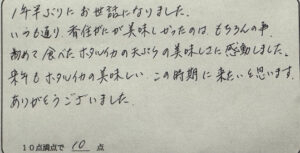 1年半ぶりにお世話になりました。
いつも通り、看住がにが美味しかったのは、もちろんの事
初めて食べたホタルイカの天ぷらの美味しさに感動しました。
来年もホタルイカの美味しい、この時期に来たいと思います。
ありがとうございました。
10点満点で 10 点